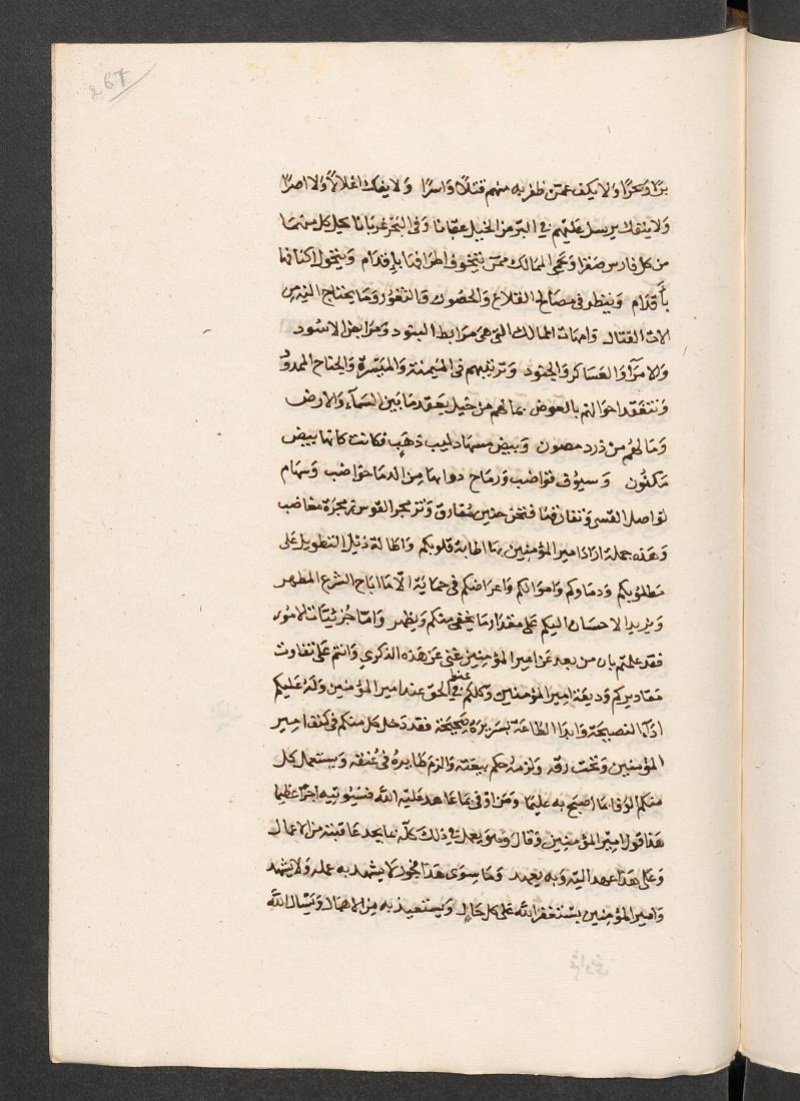 267
برًّا وبحرًا ولا يكف عمّن ظفر به منهم قتلًا واسرًا ولا يفك اغلالًا ولا اصرًا
ولا ينفك يرسل عليهم في البر من الخيل عقبانا وفي البحر غربانا تحمل كل منهما
من كل فارس صقرا ويحمى الممالك ممن يتخوف اطرافها باقدام ويتخول اكنافها
بأقدام وينظر في مصالح القلاع والحصون والثغور وما يحتاج اليه من
الات القتال وامهات الممالك التي هي مرابط البنود ومرابض الاسود
والامرآء والعساكر والجنود وترتيبهم في الميمنة والميسرة والجناح الممدود
وتتفقد احوالهم بالعرض بما لهم من خيل يعقد ما بين السمآء والارض
وما لهم من زرد مصون وبيض مسها ذايب ذهب فكانت كانها بيض
مكنون وسيوف قواضب ورماح دوامها من الدما خواضب وسهام
تواصل القسي وتفارقها فتحن حنين مفارق وتزمجر القوس زمجرة مغاضب
وهذه جملة اراد امير المؤمنين بها اطابة قلوبكم واطالة ذيل التطويل على
مطلوبكم ودماوكم واموالكم واعراضكم في حماية الا ما اباح الشرع المطهر
ومزيد الاحسان اليكم على مقدار ما يخفى منكم ويظهر واما جزئيات الامور
فقد علمتم بان من بعد عن امير المؤمنين غني عن هذه الذكري وانتم على تفاوت
مقاديركم وديعة امير المؤمنين وكلكم في الحق عند امير المؤمنين وله عليكم
ادآء النصيحة وابدا الطاعة بسريرة صحيحة فقد دخل كل منكم في كنف امير
المؤمنين وتحت رقه ولزمه حكم بيعته والزم طايره في عنقه ويستعمل كل
منكم الوفا بما اصبح به عليما ومن اوفى بما عاهد عليه الله فسيوتيه اجرًا عظيما
هذا قول امير المؤمنين وقال وهو يعمل في ذلك كله بما يحمد عاقبته من الاعمال
وعلى هذا عهد اليه وبه يعهد وما سوى هذا فجور لا يشهد به عمله ولا يشهد
وامير المؤمنين يستغفر الله على كل حال ويستعيذ به من الاهمال ويسال الله